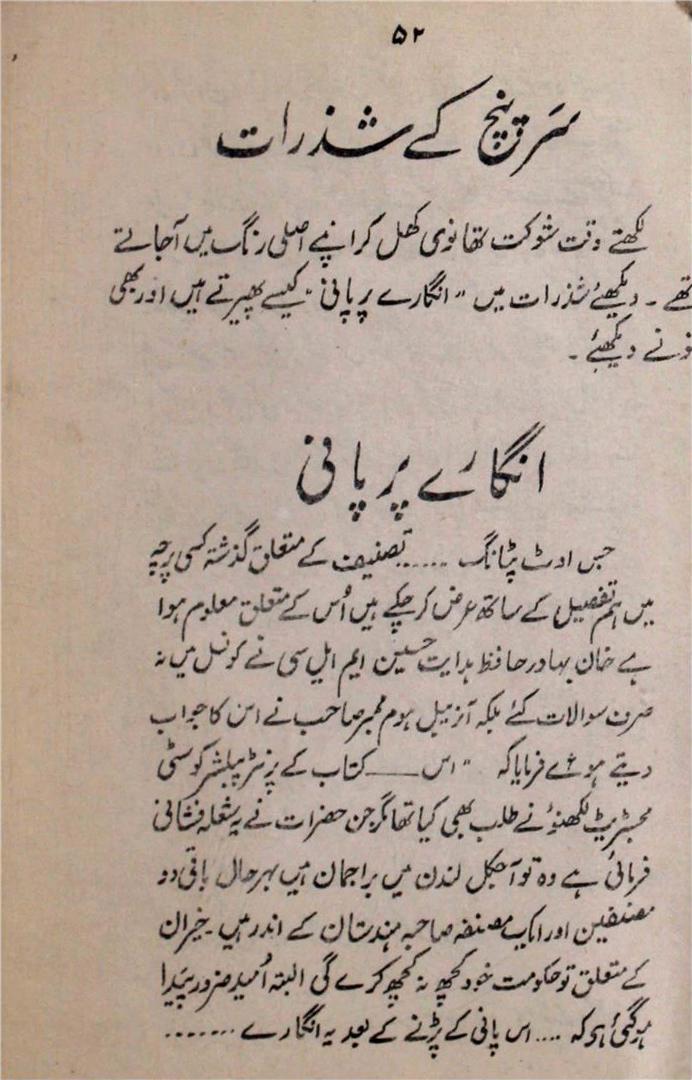 ۵۲
سَرپنچ کے شذرات
لکھتے وقت شوکت تھانوی کھل کر اپنے اصلی رنگ میں آجاتے
تھے ۔ دیکھئے شذرات میں "انگارے پر پانی" کیسے پھیرتے ہیں اور بھی
نمونے دیکھئے ۔
انگارے پر پانی
جس اوٹ پٹانگ ..... تصنیف کے متعلق گذشتہ کسی پرچہ
میں ہم تفصیل کے ساتھ عرض کر چکے ہیں اُس کے متعلق معلوم ہوا
ہے خان بہادر حافظ ہدایت حسین ایم ایل سی نے کونسل میں نہ
صرف سوالات کئے بلکہ آنریبل ہوم ممبر صاحب نے اس کا جواب
دیتے ہوئے فرمایا کہ "اس ــــــ کتاب کے پرنٹر پبلشر کو سٹی
مجسٹریٹ لکھنؤ نے طلب بھی کیا تھا مگر جن حضرات نے یہ شعلہ فشانی
فرمائی ہے وہ تو آجکل لندن میں براجمان ہیں بہرحال باقی دو
مصنفین اور ایک مصنفہ صاحبہ ہندستان کے اندر ہیں ۔ خیر ان
کے متعلق تو حکومت خود کچھ نہ کچھ کرے گی البتہ اُمید ضرور پیدا
ہوگئی ہے کہ .... اس پانی کے پڑنے کے بعد یہ انگارے .......